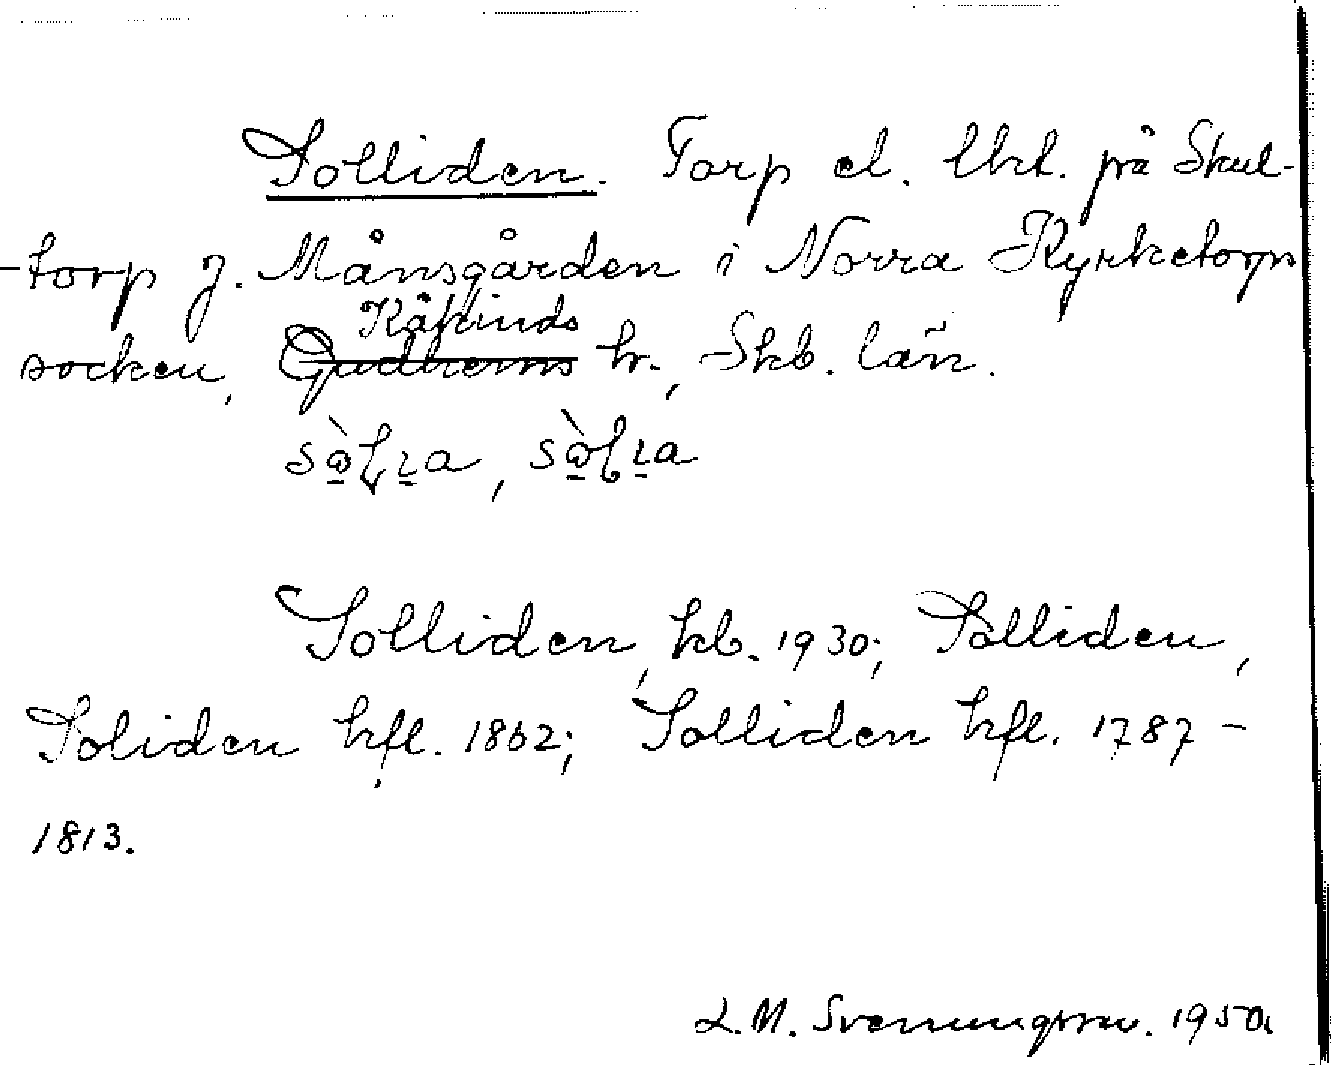 Solliden. Torp el. lht. på Skul-
torp J. Månsgården i Norra Kyrketorps
Kåkinds
socken, Gudhems hr., Skb. län.
Solliden, kb. 1930; Solliden,
Soliden hfl. 1862; Solliden hfl. 1787-
1813.
L.M. Svenungsson. 1950